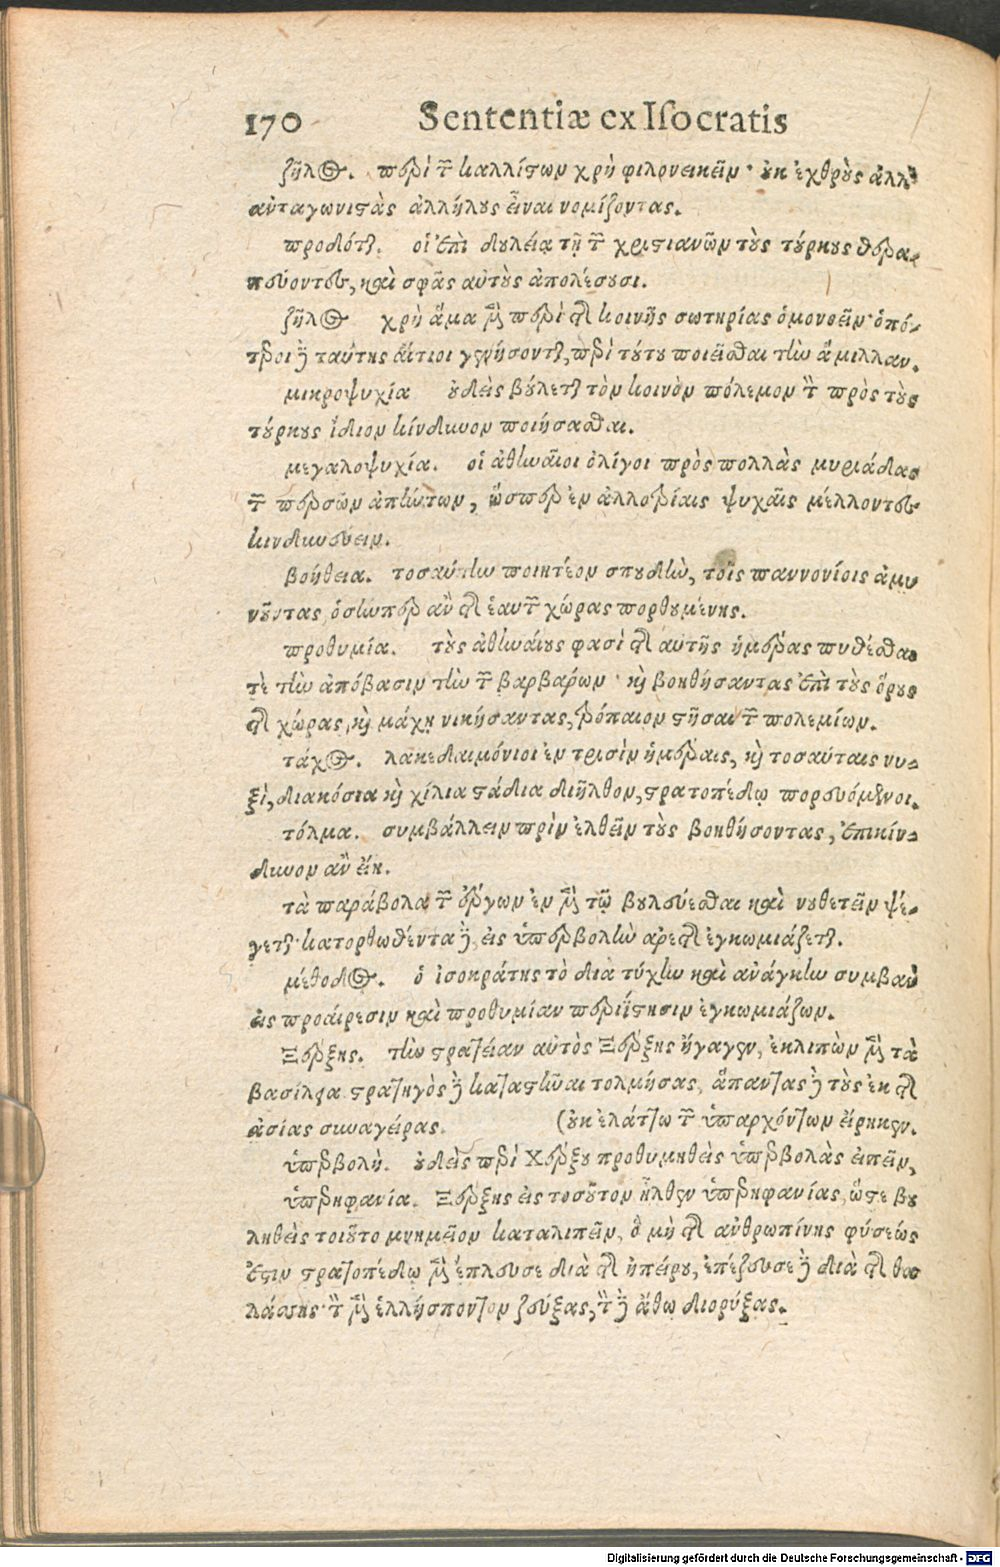 170 Sententiæ ex Isocratis
ζῆλος. περὶ τῶν καλλίστων χρὴ φιλονεικεῖν· οὐκ ἐχθροὺς ἀλλ'
ἀνταγωνιστὰς ἀλλήλους εἶναι νομίζοντας.
προδότης. οἱ ἐπὶ δουλείᾳ τῇ τῶν χριστιανῶν τοὺς τούρκους θερα-
πεύοντες, καὶ σφᾶς αὐτοὺς ἀπολέσουσι.
ζῆλος χρὴ ἅμα μὲν περὶ τῆς κοινῆς σωτηρίας ὁμονοεῖν· ὁπό-
τεροι δὲ ταύτης αἴτιοι γενήσονται, περὶ τούτου ποιεῖσθαι τὴν ἅμιλλαν.
μικροψυχία οὐδεὶς βούλεται τὸν κοινὸν πόλεμον τὸν πρὸς τοὺς
τούρκους ἴδιον κίνδυνον ποιήσασθαι.
μεγαλοψυχία. οἱ ἀθηναῖοι ὀλίγοι πρὸς πολλὰς μυριάδας
τῶν περσῶν ἀπήντων, ὥσπερ ἐν ἀλλοτρίαις ψυχαῖς μέλλοντες
κινδυνεύειν.
βοήθεια. τοσαύτην ποιητέον σπουδὴν, τοῖς παννονίοις ἀμυ
νοῦντας, ὅσηνπερ ἂν τῆς ἑαυτῶν χώρας πορθουμένης.
προθυμία. τοὺς ἀθηναίους φασὶ τῆς αὐτῆς ἡμέρας πυθέσθαι
τὲ τὴν ἀπόβασιν τὴν τῶν βαρβάρων· καὶ βοηθήσαντας ἐπὶ τοὺς ὅρους
τῆς χώρας, καὶ μάχῃ νικήσαντας, τρόπαιον στῆσαι τῶν πολεμίων.
τάχος. λακεδαιμόνιοι ἐν τρισὶν ἡμέραις, καὶ τοσαύταις νυ-
ξὶ, διακόσια καὶ χίλια στάδια διῆλθον, στρατοπέδῳ πορευόμενοι.
τόλμα. συμβάλλειν πρὶν ἐλθεῖν τοὺς βοηθήσοντας, ἐπικίν-
δυνον ἂν εἴη.
τὰ παράβολα τῶν ἔργων ἐν μὲν τῷ βουλεύεσθαι καὶ νουθετεῖν ψέ-
γεται· κατορθωθέντα δὲ, εἰς ὑπερβολὴν ἀρετῆς ἐγκωμιάζεται.
μέθοδος. ὁ ἰσοκράτης τὸ διὰ τύχην καὶ ἀνάγκην συμβαὸ
εἰς προαίρεσιν καὶ προθυμίαν περιΐστησιν ἐγκωμιάζων.
Ξέρξης. τὴν στρατείαν αὐτὸς Ξέρξης ἤγαγεν, ἐκλιπὼν μὲν τὰ
βασίλεια στρατηγὸς δὲ καταστῆναι τολμήσας, ἅπαντας δὲ τοὺς ἐκ τῆς
ἀσίας συναγείρας. (οὐκ ἐλάττω τῶν ὑπαρχόντων εἴρηκεν.
ὑπερβολή. οὐδεὶς περὶ Χέρξου προθυμηθεὶς ὑπερβολὰς εἰπεῖν,
ὑπερηφανία. Ξέρξης εἰς τοσοῦτον ἦλθεν ὑπερηφανίας, ὥστε βου
ληθεὶς τοιοῦτο μνημεῖον καταλιπεῖν, ὃ μὴ τῆς ἀνθρωπίνης φύσεώς
ἐστιν στρατοπέδῳ μὲν ἔπλευσε διὰ τῆς ἠπείρου, ἐπέζευσε δὲ διὰ τῆς θα
λάσσης· τὸν μὲν ἑλλήσποντον ζεύξας, τὸν δὲ ἄθω διορύξας.
Digitalisierung gefördert durch die Deutsche Forschungsgemeinschaft - DFG